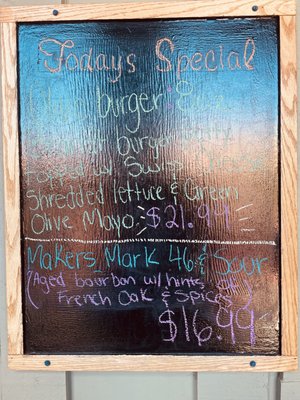 Todays Special
burger &
burger
Topped w/ Swiss
Shredded lettuce & Careens
Olive Mayo - $21.99
Makers Mark 46 & Sour
(Aged bourbon w/ hints of
French Oak & Spices)
$16.99